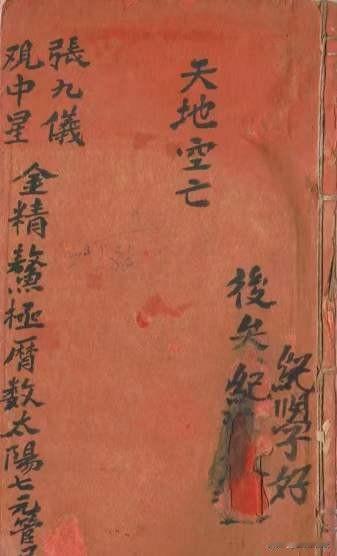 紀學好
後矢紀
天地空亡
張九儀
观中星
金精鰲極曆数太陽七元管